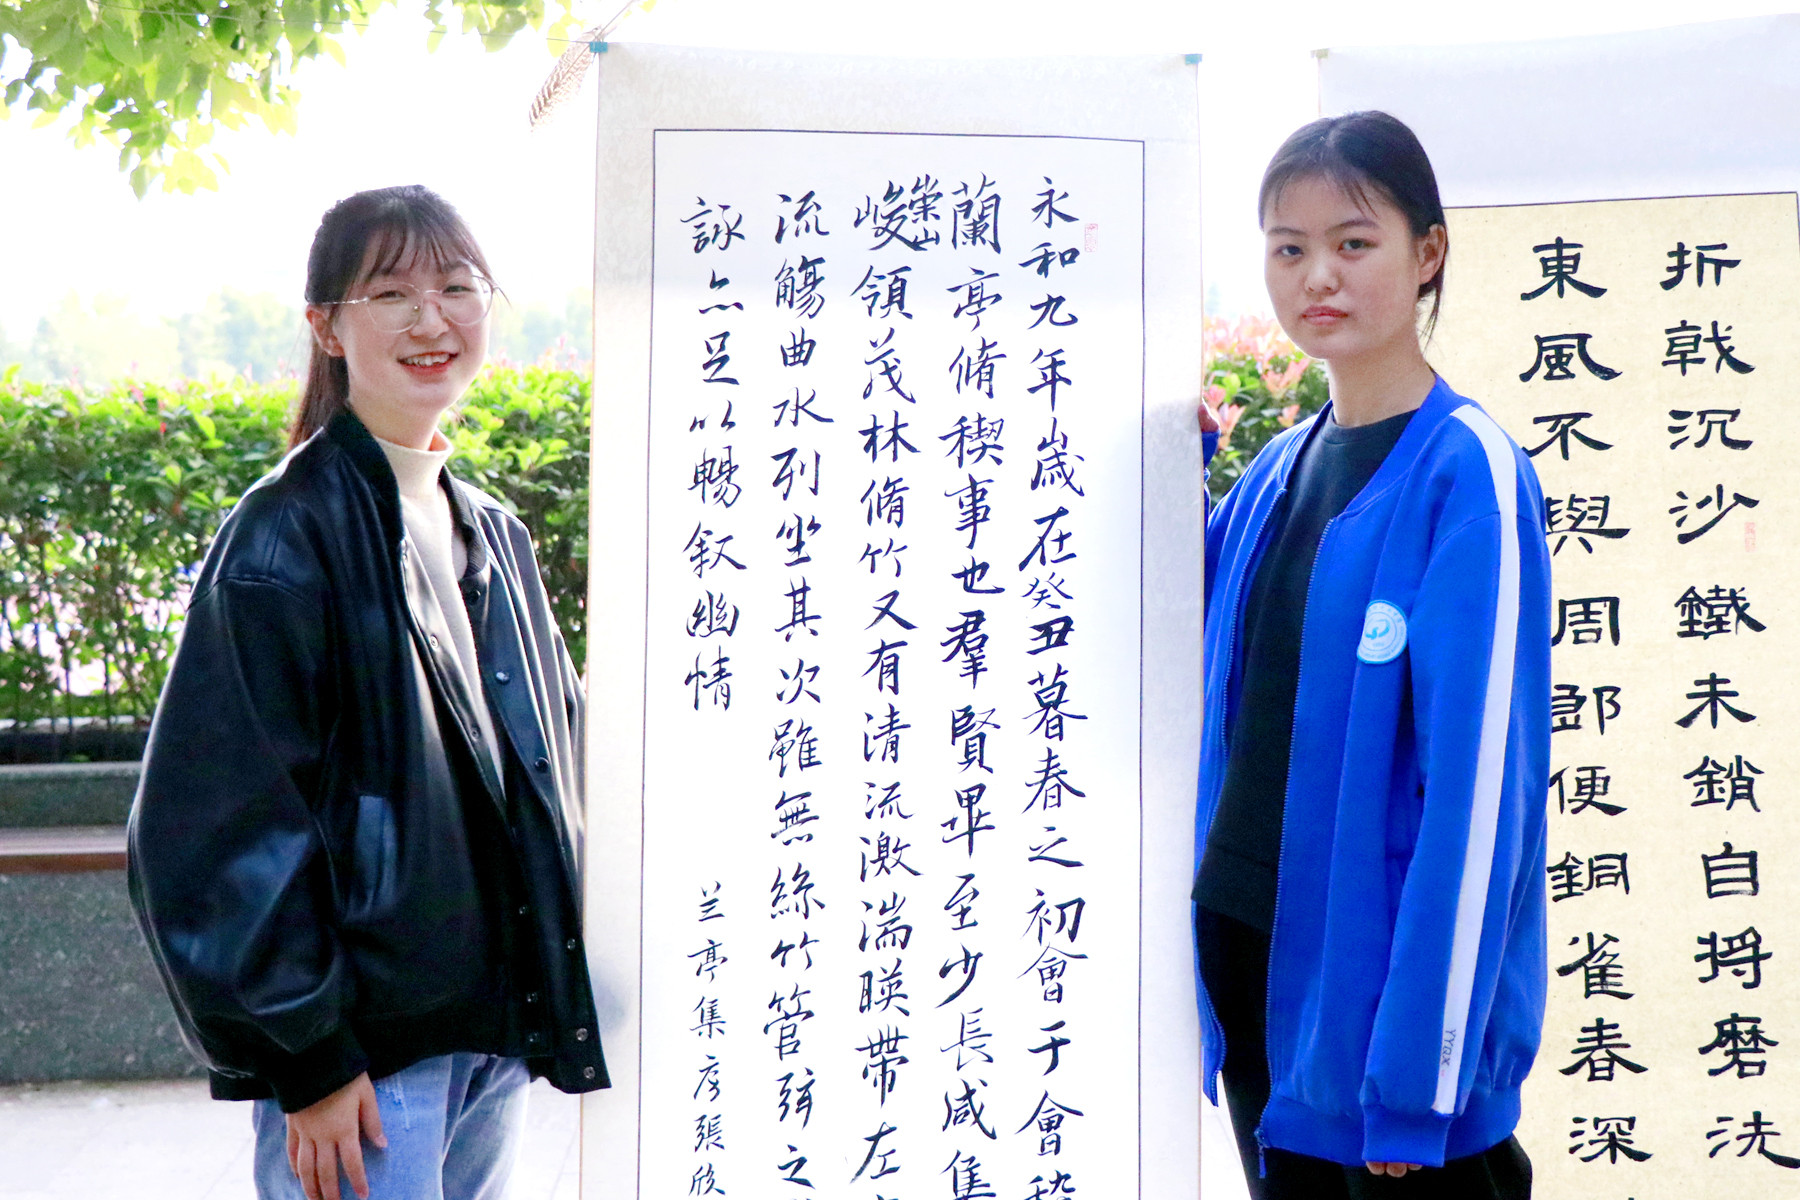 永和九年歲在癸丑暮春之初會于會稽
蘭亭脩稧事也羣賢畢至少長咸集
崇山峻領茂林脩竹又有清流激湍暎帶左
流觴曲水列坐其次雖無絲竹管弦之
詠亦足以暢叙幽情
兰亭集序張欣
折戟沉沙鐵未銷自將磨洗
東風不與周郎便銅雀春深
YYQX